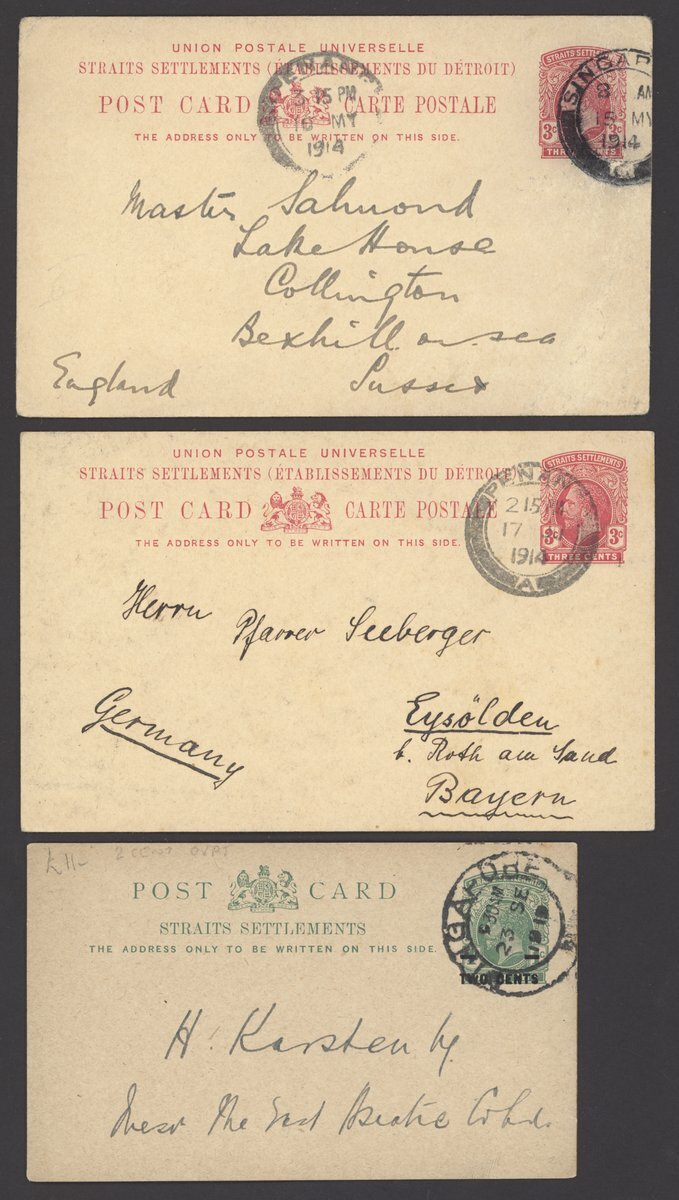 UNION POSTALE UNIVERSELLE
STRAITS SETTLEMENTS (ÉTABLISSEMENTS DU DÉTROIT)
POST CARD CARTE POSTALE
THE ADDRESS ONLY TO BE WRITTEN ON THIS SIDE.
PENANG
3 15 PM
16 MY
1914
STRAITS SETTLEMENTS
3c 3c
THREE CENTS
SINGAPO
8 AM
15 MY
1914
Master Salmond
Lake House
Collington
Bexhill on sea
England Sussex
UNION POSTALE UNIVERSELLE
STRAITS SETTLEMENTS (ÉTABLISSEMENTS DU DÉTROIT)
POST CARD CARTE POSTALE
THE ADDRESS ONLY TO BE WRITTEN ON THIS SIDE.
PENAN
2 15
17
1914
A
STRAITS SETTLEMENTS
3c 3c
THREE CENTS
Herrn Pfarrer Seeberger
Germany
Eysölden
b. Roth am Sand
Bayern
£11-
2 cent ovpt
POST CARD
STRAITS SETTLEMENTS
THE ADDRESS ONLY TO BE WRITTEN ON THIS SIDE.
SINGAPORE
23 SE
TWO CENTS
H. Karsten
The East Asiatic Co Ltd.